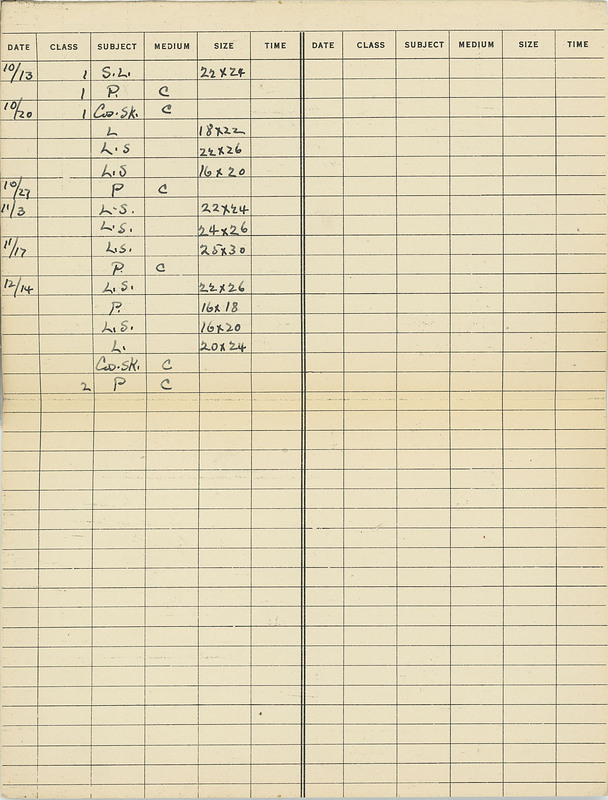 DATE CLASS SUBJECT MEDIUM SIZE TIME DATE CLASS SUBJECT MEDIUM SIZE TIME
10/13 1 S.L. 22x24
1 P. C
10/20 1 Co.Sk. C
L 18x22
L.S 22x26
L.S 16x20
10/27 P C
11/3 L.S. 22x24
L.S. 24x26
11/17 L.S. 25x30
P. C
12/14 L.S. 22x26
P. 16x18
L.S. 16x20
L. 20x24
Co.Sk. C
2 P C